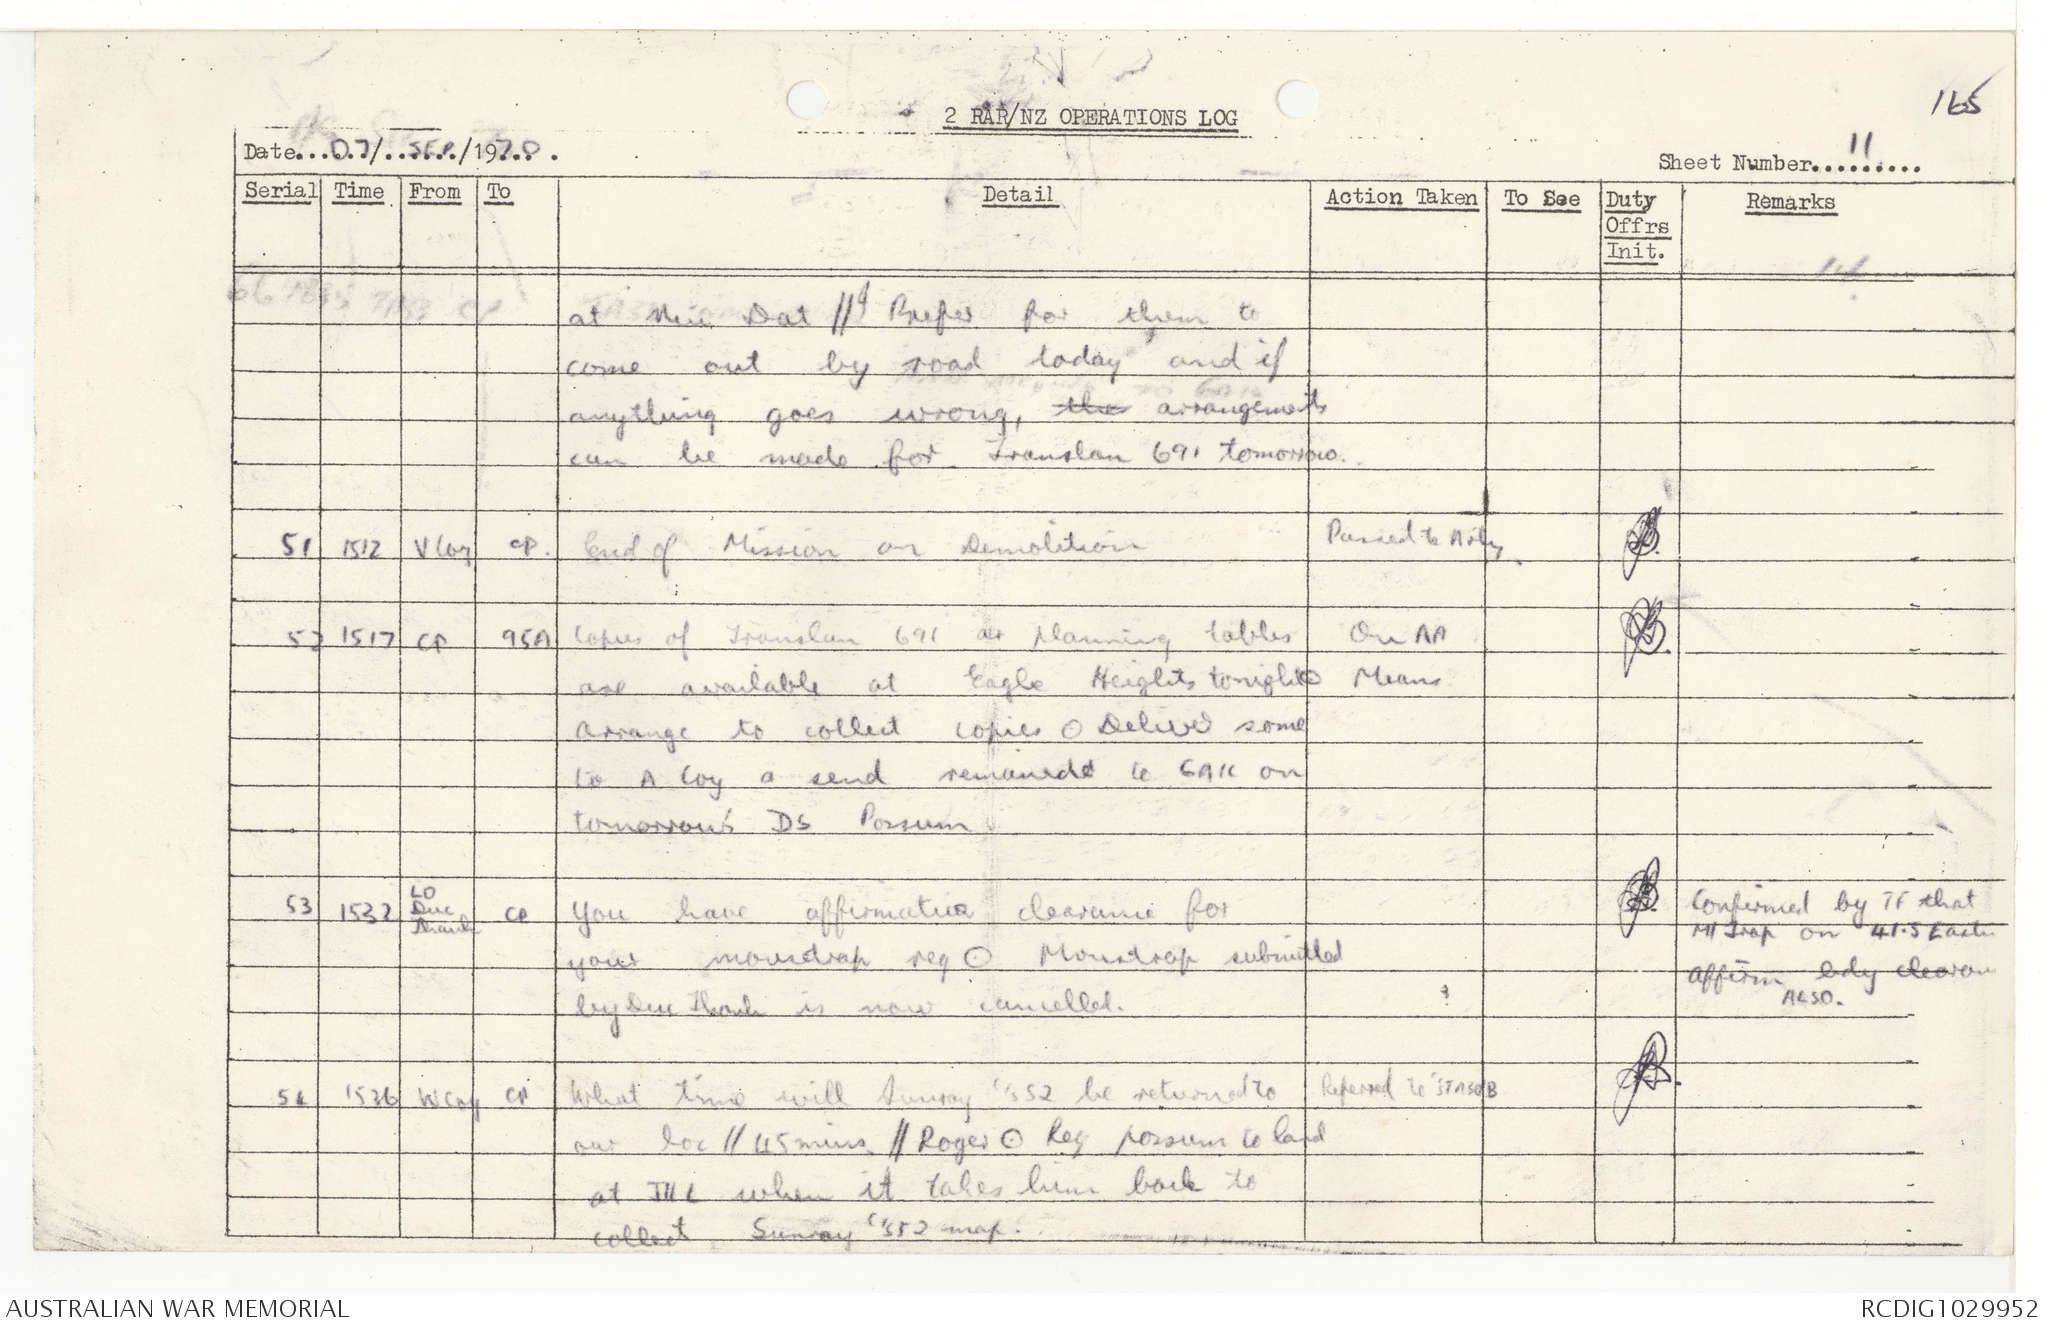 165
2 RAR/NZ OPERATIONS LOG
Date...07/.SEP./1970.
Sheet Number....11.....
Serial Time From To Detail Action Taken To See Duty Offrs Init. Remarks
at Nui Dat // Prefer for them to
come out by road today and if
anything goes wrong, the arrangements
can be made for Translan 691 tomorrow.
51 1512 V Coy CP. End of Mission on Demolition Passed to Arty
52 1517 CP 95A Copies of Translan 691 air planning tables On AA
are available at Eagle Heights tonight ⊙ Means
Arrange to collect copies ⊙ Deliver some
to A Coy a send to on
tomorrow's DS Possum
53 1532 LO Duc Thanh CP You have affirmative clearance for Confirmed by TF that
your mousetrap req ⊙ Moustrap submitted M/Trap on 41.5 East
by Duc Thanh is now cancelled. affirm bdy clearan
ALSO.
54 1536 W Coy CP What time will Sunray C/S52 be returned to Referred to
our loc // 45 mins // Roger ⊙ Req possum to land
at when it takes him back to
collect Sunray C/S52 map.
AUSTRALIAN WAR MEMORIAL
RCDIG1029952